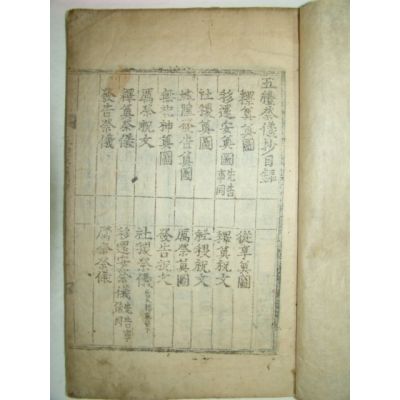 五禮祭儀抄目錄
釋奠奠圖 從享奠圖
移還安奠圖 先告事同 釋奠祝文
社稷奠圖 社稷祝文
城隍發告奠圖 厲祭奠圖
無祀神奠圖 發告祝文
厲祭祝文 社稷祭儀
釋奠祭儀 移還安祭儀 先告事儀同
發告祭儀 厲祭祭儀